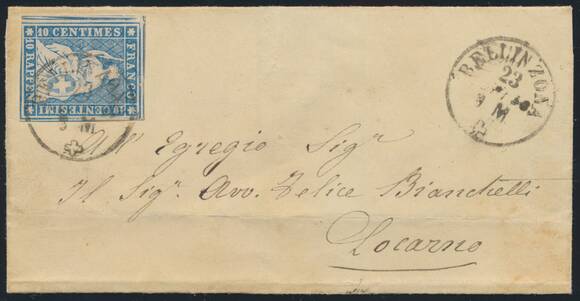 10 CENTIMES
10 RAPPEN
FRANCO
10 CENTESIMI
BELLINZONA
23
M
All' Egregio Sigr
Il Sigr. Avv. Felice Bianchetti
Locarno